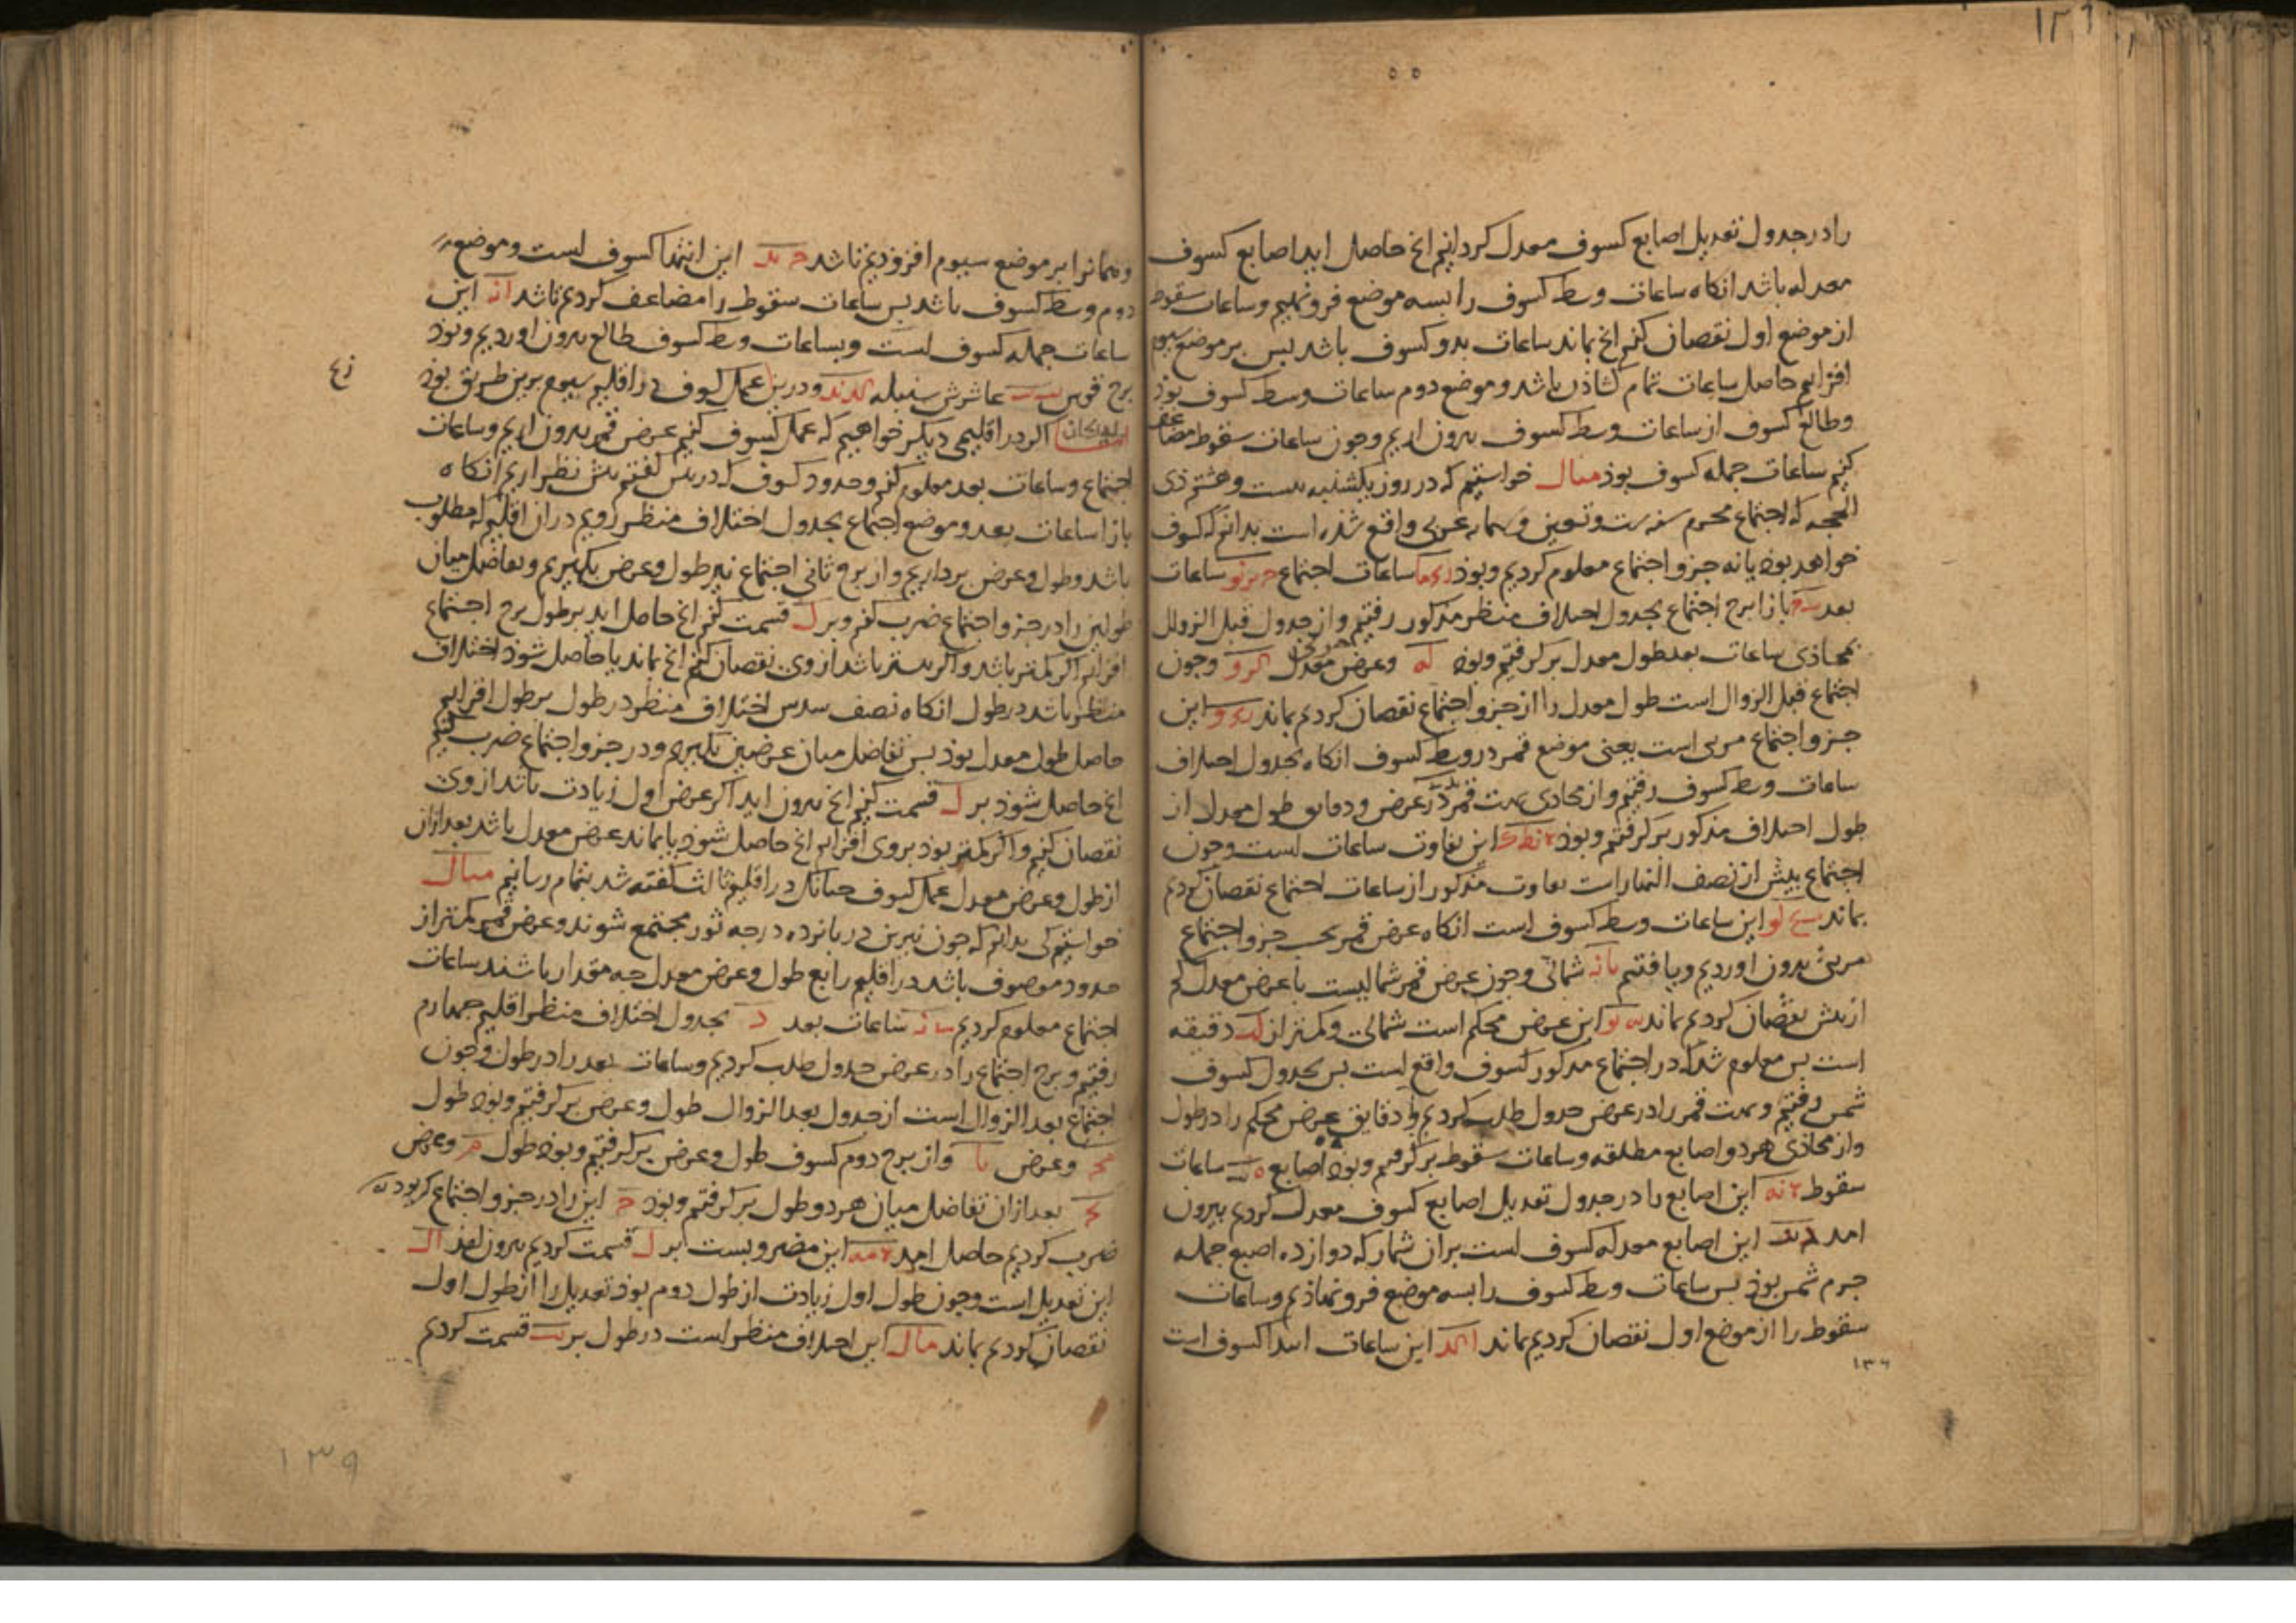 ١٣٦
را در جدول تعدیل اصابع کسوف معدل کردانیم انج حاصل اید اصابع کسوف
معدله باشد انکاه ساعات وسط کسوف را بسه موضع فرونهیم وساعات سقوط
از موضع اول نقصان کنیم انج بماند ساعات بدو کسوف باشد بس بر موضع سیوم
افزاییم حاصل ساعات تمام کشاذن باشد و موضع دوم ساعات وسط کسوف بوذ
وطالع کسوف از ساعات وسط کسوف بیرون اریم وجون ساعات سقوط مضاعف
کنیم ساعات جمله کسوف بوذ مثال خواستیم که در روز یکشنبه بیست وهشتم ذی
الحجه که اجتماع محرم سنه ست وتسعین و عربی واقع شذه است بدانیم که کسوف
خواهد بوذ یا نه جزو اجتماع معلوم کردیم وبوذ ساعات اجتماع ساعات
بعد بازا برج اجتماع بجدول اختلاف منظر مذکور رفتیم و از جدول قبل الزوال
بمحاذی ساعات بعد طول معدل بر کرفتیم وبوذ له وعرض معدل وجون
اجتماع قبل الزوال است طول معدل را از جزو اجتماع نقصان کردیم بماند این
جزو اجتماع مریی است یعنی موضع قمر در وسط کسوف انکاه بجدول اختلاف
ساعات وسط کسوف رفتیم و از محاذی بهت قمر در عرض ودقایق طول معدل از
طول اختلاف مذکور بر کرفتیم وبوذ این تفاوت ساعات است وجون
اجتماع بیش از نصف النهار است تفاوت مذکور از ساعات اجتماع نقصان کردیم
بماند این ساعات وسط کسوف است انکاه عرض قمر بحسب جزو اجتماع
مریی بیرون اوردیم ویافتیم شمالی وجون عرض قمر شمالیست با عرض معدل کم
ازیش نقصان کردیم بماند این عرض محکم است شمالی وکمتر از دقیقه
است بس معلوم شد که در اجتماع مذکور کسوف واقع است بس بجدول کسوف
شمس رفتیم وبهت قمر را در عرض جدول طلب کردیم و دقایق عرض محکم را در طول
واز محاذی هر دو اصابع مطلقه وساعات سقوط بر کرفتیم وبوذ اصابع ساعات
سقوط این اصابع را در جدول تعدیل اصابع کسوف معدل کردیم بیرون
امد این اصابع معدله کسوف است بر ان شمار که دوازده اصبع جمله
جرم شمس بوذ بس ساعات وسط کسوف را بسه موضع فرو نهاذیم وساعات
سقوط را از موضع اول نقصان کردیم بماند این ساعات ابتدا کسوف است
١٣٦
وهمانرا بر موضع سیوم افزوذیم تا شد این انتها کسوف است وموضع
دوم وسط کسوف باشد بس ساعات سقوط را مضاعف کردیم تا شد این
ساعات جمله کسوف است وبساعات وسط کسوف طالع بیرون اوردیم وبوذ
برج قوس عاشرش سنبله ودرین عمل کسوف در اقلیم سیوم برین طریق بوذ
اکر در اقلیمی دیکر خواهیم که عمل کسوف کنیم عرض قمر بیرون اریم وساعات
اجتماع وساعات بعد معلوم کنیم وحدود کسوف که در بیش کفتیم بیش نظر اریم انکاه
بازا ساعات بعد وموضع اجتماع بجدول اختلاف منظر رویم در ان اقلیم که مطلوب
باشد وطول وعرض برداریم و از برج ثانی اجتماع نیز طول وعرض بکیریم وتفاضل میان
طولین را در جزو اجتماع ضرب کنیم وبر ل قسمت کنیم انج حاصل اید بر طول برج اجتماع
افزاییم اکر کمتر باشد و اکر بیشتر باشد از وی نقصان کنیم انج بماند یا حاصل شوذ اختلاف
منظر باشد در طول انکاه نصف سدس اختلاف منظر در طول بر طول افزاییم
حاصل طول معدل بوذ بس تفاضل میان عرضین بکیریم ودر جزو اجتماع ضرب کنیم
انج حاصل شوذ بر ل قسمت کنیم انج بیرون اید اکر عرض اول زیادت باشد از وی
نقصان کنیم و اکر کمتر بوذ بر وی افزاییم انج حاصل شوذ یا بماند عرض معدل باشد بعد ازان
از طول وعرض معدل عمل کسوف جنانک در اقلیم ثالث کفته شد بتمام رسانیم مثال
خواستیم کی بدانیم که جون نیرین در بانزده درجه ثور مجتمع شوند وعرض قمر کمتر از
حدود موصوف باشد در اقلیم رابع طول وعرض معدل جه مقدار باشند ساعات
اجتماع معلوم کردیم ساعات بعد د بجدول اختلاف منظر اقلیم جهارم
رفتیم وبرج اجتماع را در عرض جدول طلب کردیم وساعات بعد را در طول وجون
اجتماع بعد الزوال است از جدول بعد الزوال طول وعرض بر کرفتیم وبوذ طول
وعرض واز برج دوم کسوف طول وعرض بر کرفتیم وبوذ طول وعرض
بعد ازان تفاضل میان هر دو طول بر کرفتیم وبوذ این را در جزو اجتماع کی بوذ یه
ضرب کردیم حاصل امد این مضروبست بر ل قسمت کردیم بیرون امد
این تعدیل است وجون طول اول زیادت از طول دوم بوذ تعدیل را از طول اول
نقصان کردیم بماند این اختلاف منظر است در طول بر قسمت کردیم
١٣٩